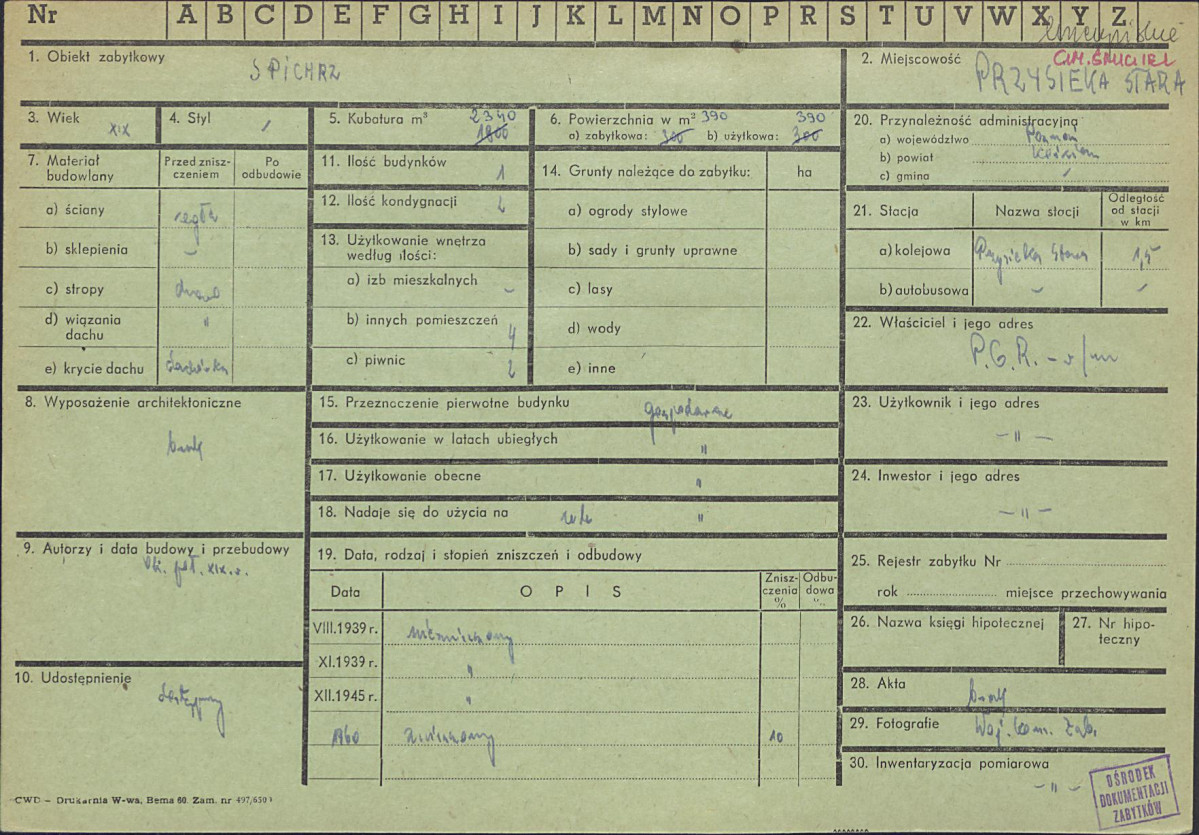 Nr A B C D E F G H I J K L M N O P R S T U V W X Y Z
1. Obiekt zabytkowy
SPICHRZ
2. Miejscowość
GM. ŚMIGIEL
PRZYSIEKA STARA
3. Wiek
XIX
4. Styl
/
5. Kubatura m³ 2340
1800
6. Powierzchnia w m² 390 390
a) zabytkowa: 300 b) użytkowa: 300
20. Przynależność administracyjna
a) województwo Poznań
b) powiat Kościan
c) gmina /
7. Materiał budowlany
Przed zniszczeniem
Po odbudowie
a) ściany cegła
b) sklepienia –
c) stropy drewno
d) wiązania dachu "
e) krycie dachu dachówka
11. Ilość budynków 1
12. Ilość kondygnacji 2
13. Użytkowanie wnętrza według ilości:
a) izb mieszkalnych –
b) innych pomieszczeń 4
c) piwnic 2
14. Grunty należące do zabytku: ha
a) ogrody stylowe
b) sady i grunty uprawne
c) lasy
d) wody
e) inne
21. Stacja
Nazwa stacji
Odległość od stacji w km
a) kolejowa Przysieka Stara 1,5
b) autobusowa – –
22. Właściciel i jego adres
P.G.R. – w/m
8. Wyposażenie architektoniczne
brak
15. Przeznaczenie pierwotne budynku gospodarcze
16. Użytkowanie w latach ubiegłych "
17. Użytkowanie obecne "
18. Nadaje się do użycia na cele "
23. Użytkownik i jego adres
– " –
24. Inwestor i jego adres
– " –
9. Autorzy i data budowy i przebudowy
poł. XIX w.
19. Data, rodzaj i stopień zniszczeń i odbudowy
Data
OPIS
Zniszczenia %
Odbudowa %
VIII.1939 r. niezniszczony
XI.1939 r. "
XII.1945 r. "
1960 zniszczony 10
25. Rejestr zabytku Nr
rok miejsce przechowywania
26. Nazwa księgi hipotecznej
27. Nr hipoteczny
10. Udostępnienie
dostępny
28. Akta brak
29. Fotografie Woj. Kons. Zab.
30. Inwentaryzacja pomiarowa
– " –
OŚRODEK
DOKUMENTACJI
ZABYTKÓW
CWD – Drukarnia W-wa, Bema 60. Zam. nr 497/650